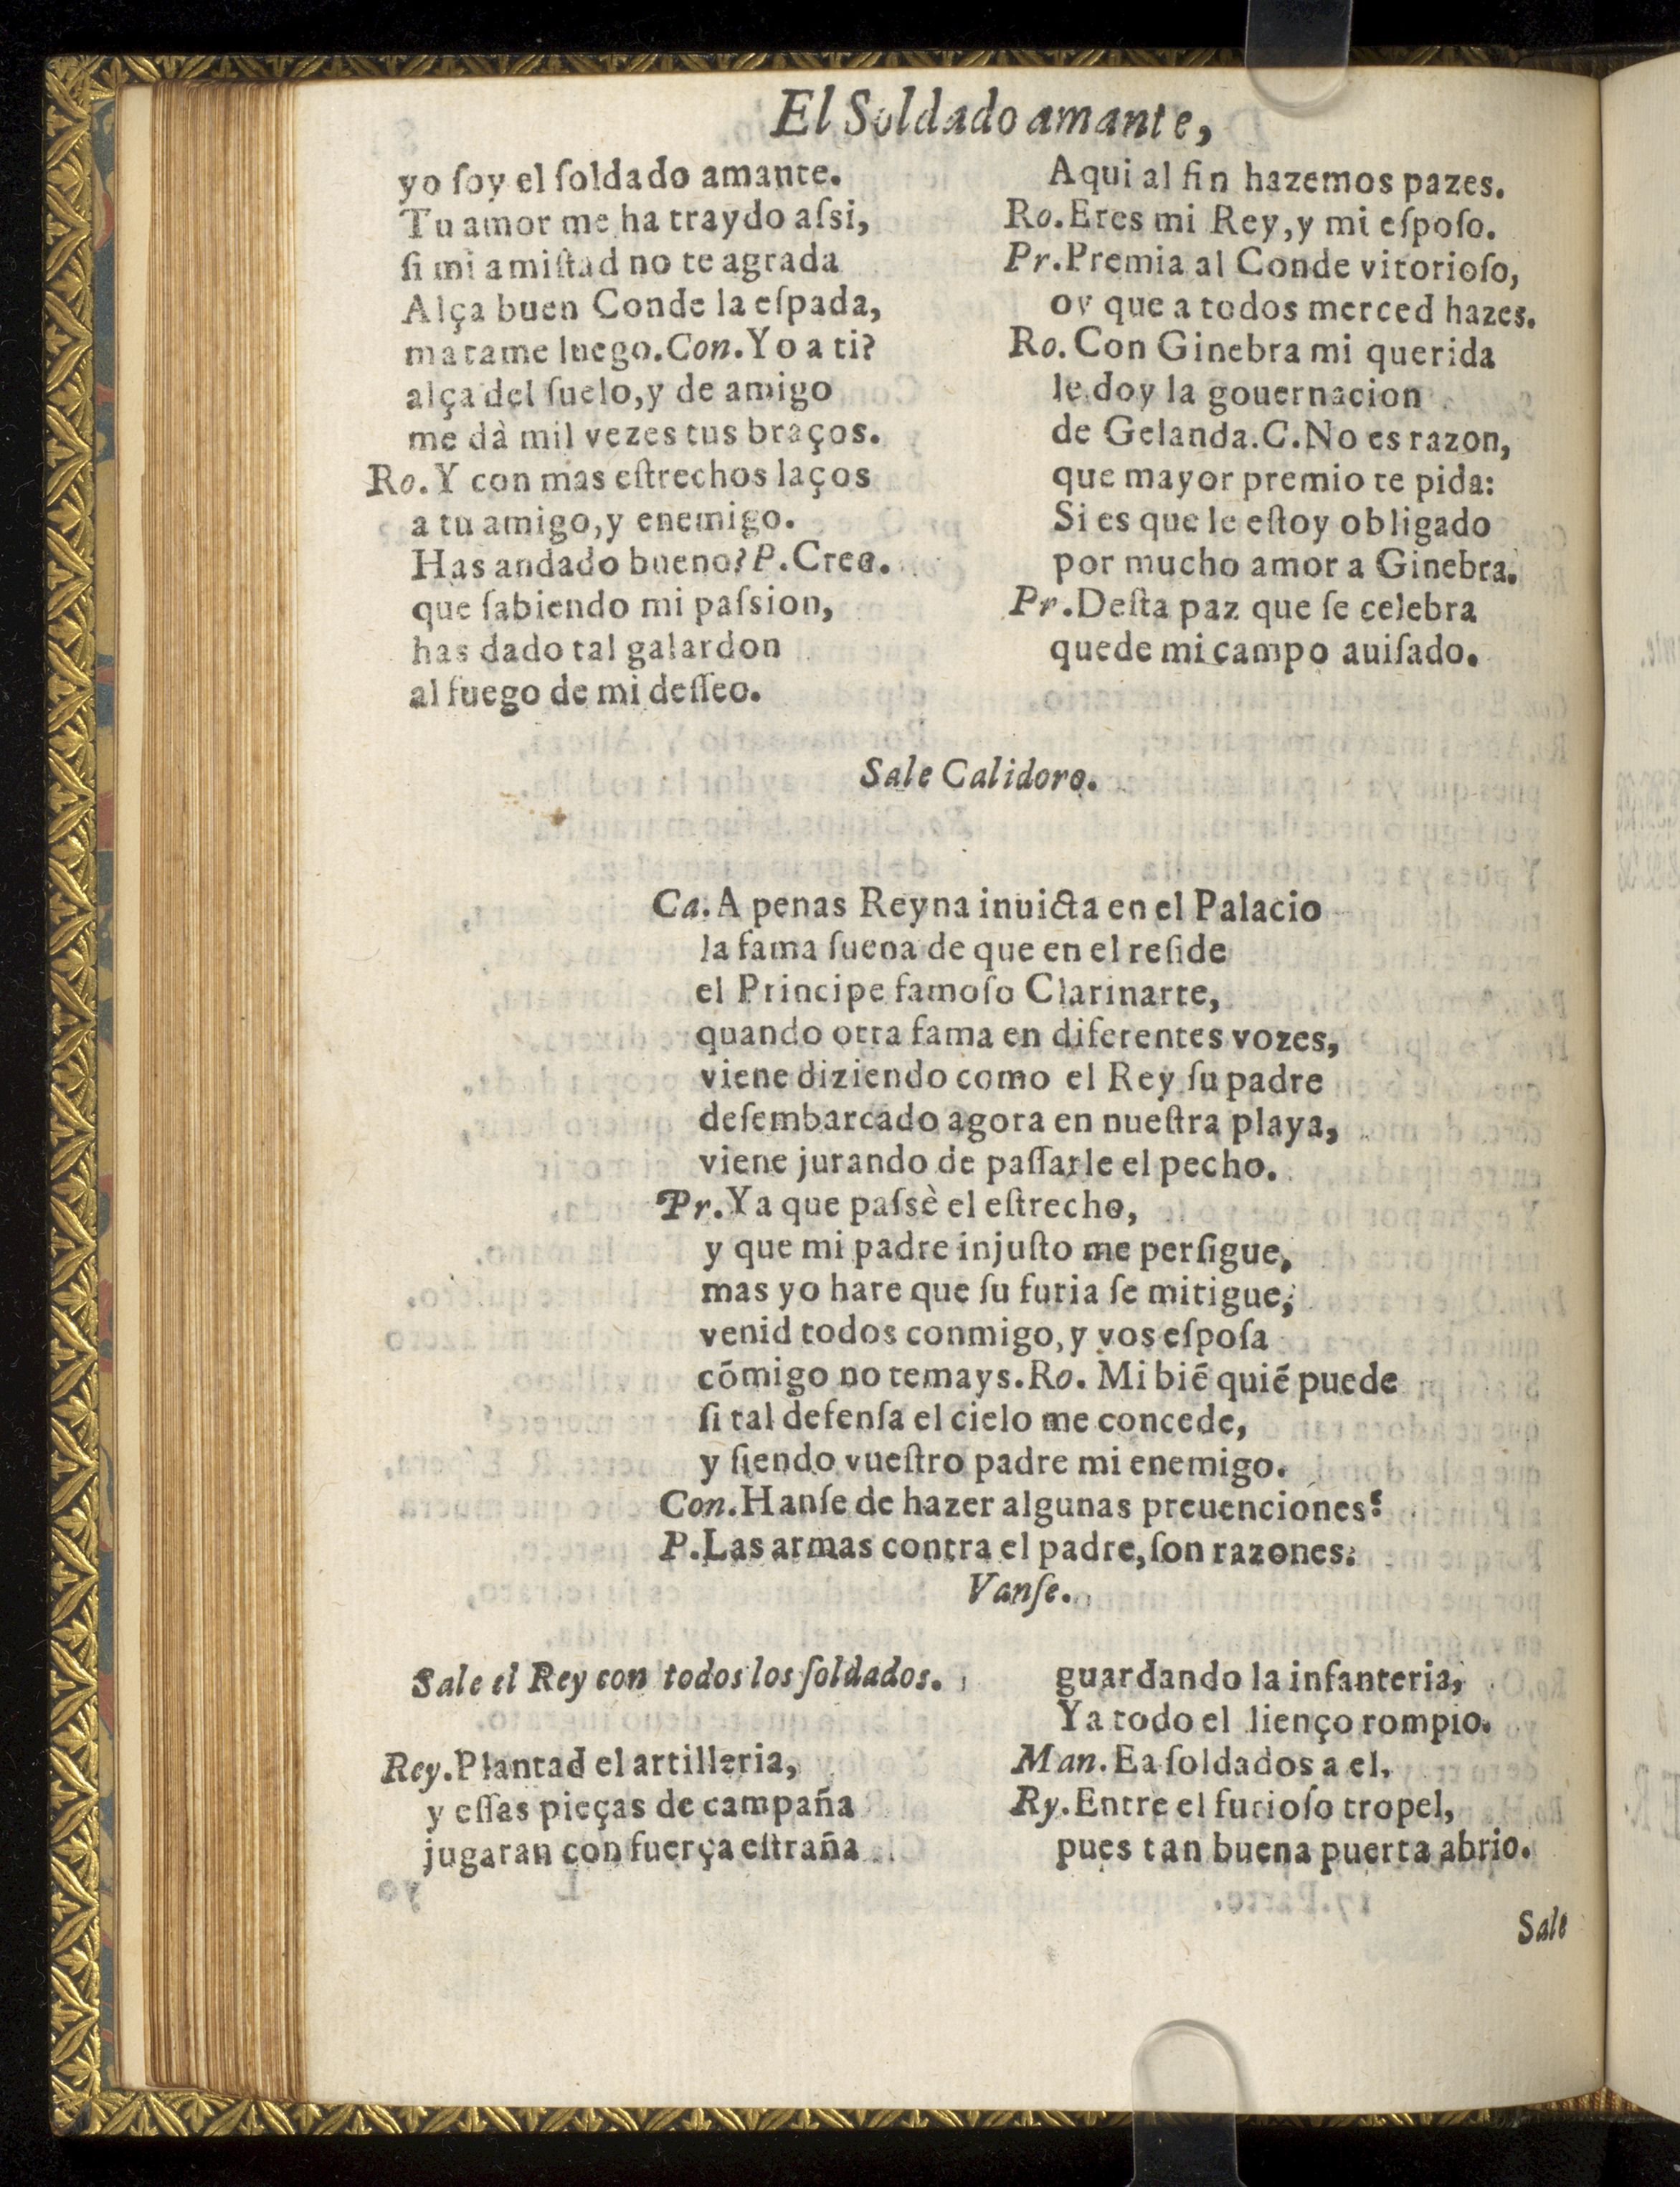 El Soldado amante,
yo ſoy el ſoldado amante.
Tu amor me ha traydo aſsi,
ſi mi amiſtad no te agrada
Alça buen Conde la eſpada,
matame luego.Con.Yo a ti?
alça del ſuelo,y de amigo
me dà mil vezes tus braços.
Ro.Y con mas eſtrechos laços
a tu amigo,y enemigo.
Has andado bueno?P.Creo.
que ſabiendo mi paſsion,
has dado tal galardon
al fuego de mi deſſeo.
Aqui al fin hazemos pazes.
Ro.Eres mi Rey,y mi eſpoſo.
Pr.Premia al Conde vitorioſo,
oy que a todos merced hazes.
Ro.Con Ginebra mi querida
le doy la gouernacion
de Gelanda.C.No es razon,
que mayor premio te pida:
Si es que le eſtoy obligado
por mucho amor a Ginebra.
Pr.Deſta paz que ſe celebra
quede mi campo auiſado.
Sale Calidoro.
Ca.A penas Reyna inuicta en el Palacio
la fama ſuena de que en el reſide
el Principe famoſo Clarinarte,
quando otra fama en diferentes vozes,
viene diziendo como el Rey ſu padre
deſembarcado agora en nueſtra playa,
viene jurando de paſſarle el pecho.
Pr.Ya que paſsè el eſtrecho,
y que mi padre injuſto me perſigue,
mas yo hare que ſu furia ſe mitigue,
venid todos conmigo,y vos eſpoſa
cõmigo no temays.Ro. Mi biẽ quiẽ puede
ſi tal defenſa el cielo me concede,
y ſiendo vueſtro padre mi enemigo.
Con.Hanſe de hazer algunas preuenciones?
P.Las armas contra el padre,ſon razones.
Vanſe.
Sale el Rey con todos los ſoldados.
Rey.Plantad el artilleria,
y eſſas pieças de campaña
jugaran con fuerça eſtraña
guardando la infanteria,
Ya todo el lienço rompio.
Man.Ea ſoldados a el,
Ry.Entre el furioſo tropel,
pues tan buena puerta abrio.
Sale